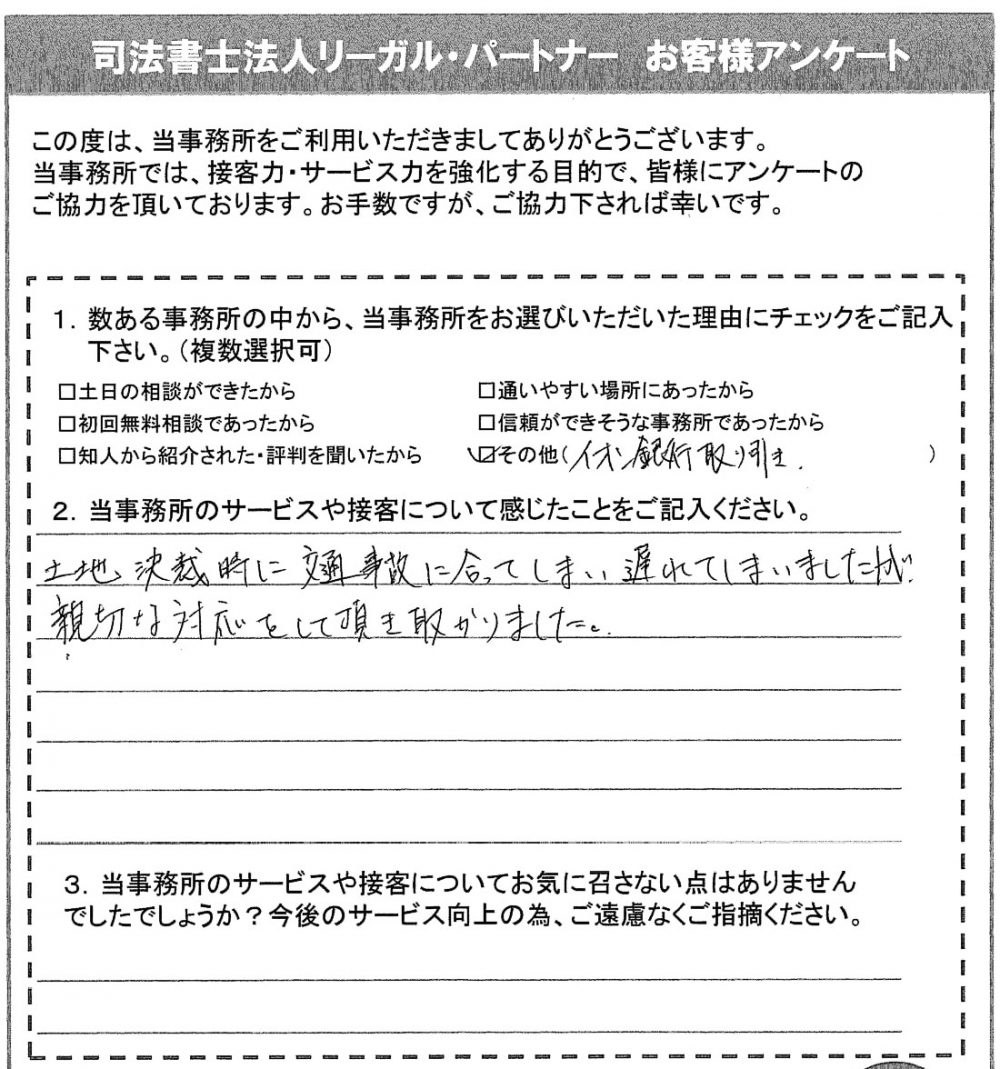 司法書士法人リーガル・パートナー お客様アンケート
この度は、当事務所をご利用いただきましてありがとうございます。
当事務所では、接客力・サービス力を強化する目的で、皆様にアンケートの
ご協力を頂いております。お手数ですが、ご協力下されば幸いです。
1. 数ある事務所の中から、当事務所をお選びいただいた理由にチェックをご記入
下さい。(複数選択可)
□土日の相談ができたから □通いやすい場所にあったから
□初回無料相談であったから □信頼ができそうな事務所であったから
□知人から紹介された・評判を聞いたから ☑その他(イオン銀行取り引き. )
2. 当事務所のサービスや接客について感じたことをご記入ください。
土地決裁時に交通事故に合ってしまい遅れてしまいましたが
親切な対応をして頂き取かりました。
3. 当事務所のサービスや接客についてお気に召さない点はありません
でしたでしょうか?今後のサービス向上の為、ご遠慮なくご指摘ください。